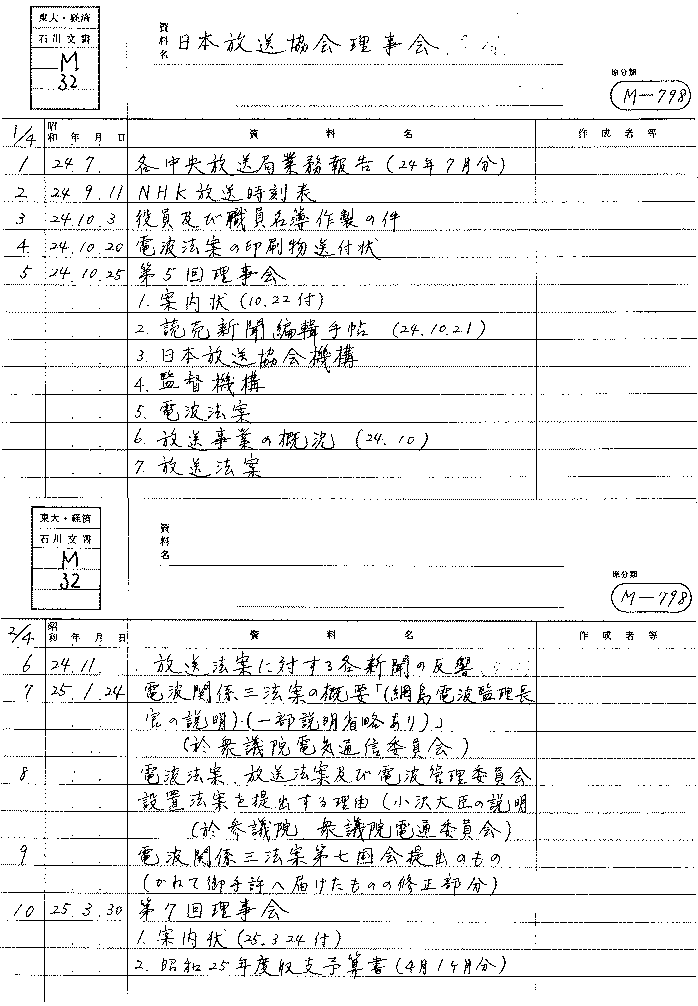 東大・経済
石川文書
M
32
資料名 日本放送協会理事会
原分類
M-798
1/4 昭和 年 月 日 資料名 作成者等
1 24.7. 各中央放送局業務報告(24年7月分)
2 24.9.11 NHK放送時刻表
3 24.10.3 役員及び職員名簿作製の件
4 24.10.20 電波法案の印刷物送付状
5 24.10.25 第5回理事会
1. 案内状(10.22付)
2. 読売新聞編輯手帖 (24.10.21)
3. 日本放送協会機構
4. 監督機構
5. 電波法案
6. 放送事業の概況 (24.10)
7. 放送法案
東大・経済
石川文書
M
32
資料名
原分類
M-798
2/4 昭和 年 月 日 資料名 作成者等
6 24.11 放送法案に対する各新聞の反響
7 25.1.24 電波関係三法案の概要「(網島電波監理長
官の説明)(一部説明省略あり)」
(於衆議院電気通信委員会)
8 電波法案、放送法案及び電波管理委員会
設置法案を提出する理由(小沢大臣の説明
(於参議院 衆議院電通委員会)
9 電波関係三法案第七国会提出のもの
(かねて御手許へ届けたものの修正部分)
10 25.3.30 第7回理事会
1. 案内状(25.3.24付)
2. 昭和25年度収支予算書(4月14月分)